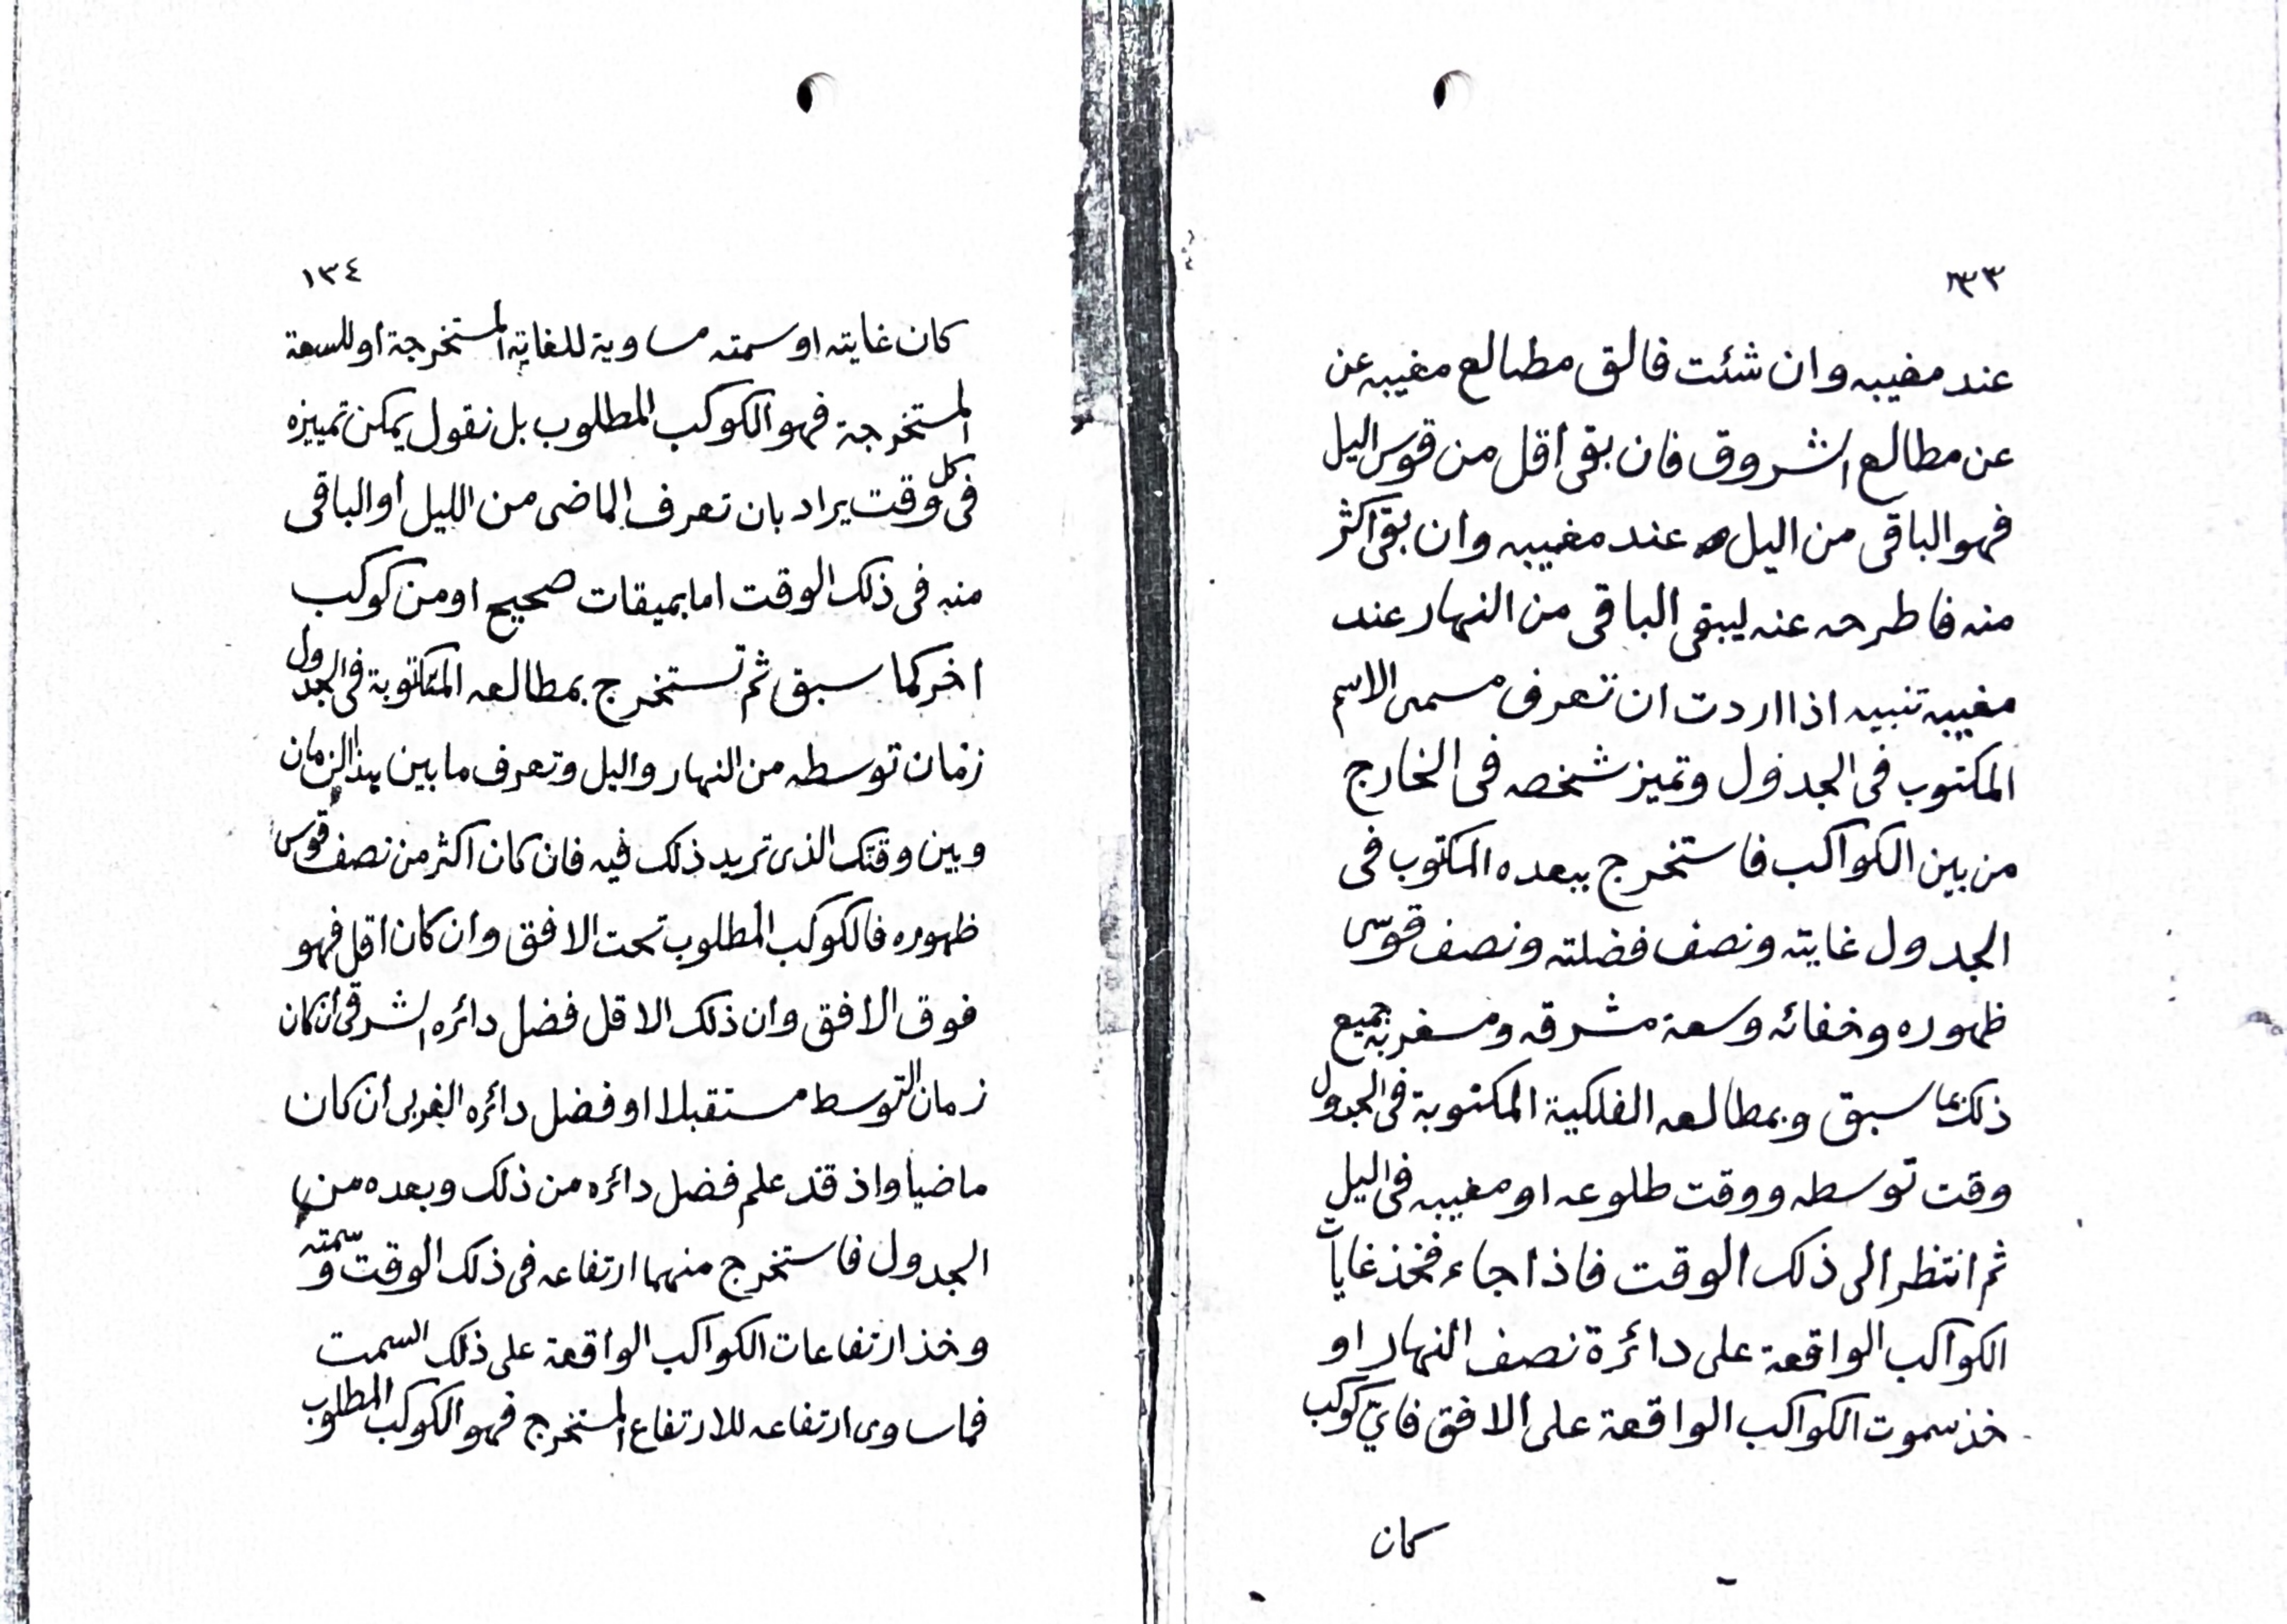 ١٣٣
عند مغيبه وان شئت فالق مطالع مغيبه عن
عن مطالع الشروق فان بقى أقل من قوس اليل
فهو الباقى من اليل عند مغيبه وان بقى اكثر
منه فاطرحه عنه ليبقى الباقى من النهار عند
مغيبه تنبيه اذا اردت ان تعرف مسمى الاسم
المكتوب فى الجدول وتميز شخصه فى الخارج
من بين الكواكب فاستخرج ببعده المكتوب فى
الجدول غايته ونصف فضلته ونصف قوسى
ظهوره وخفائه وسعة مشرقه ومغربه جميع
ذلك بما سبق وبمطالعه الفلكية المكتوبة فى الجدول
وقت توسطه ووقت طلوعه او مغيبه فى اليل
ثم انتظر الى ذلك الوقت فاذا جاء فخذ غايات
الكواكب الواقعة على دائرة نصف النهار او
خذ سموت الكواكب الواقعة على الافق فاىّ كوكب
كان
١٣٤
كان غايته او سمته مساوية للغاية المستخرجة أو للسعة
المستخرجة فهو الكوكب المطلوب بل نقول يمكن تمييزه
فى كل وقت يراد بان تعرف الماضى من الليل أو الباقى
منه فى ذلك الوقت اما بميقات صحيح او من كوكب
اخر كما سبق ثم تستخرج بمطالعه المكتوبة فى الجدول
زمان توسطه من النهار واليل وتعرف ما بين هذا الزمان
وبين وقتك الذى تريد ذلك فيه فان كان اكثر من نصف قوس
ظهوره فالكوكب المطلوب تحت الافق وان كان اقل فهو
فوق الافق وان ذلك الاقل فضل دائره الشرقى أن كان
زمان التوسط مستقبلا او فضل دائره الغربى أن كان
ماضيا واذ قد علم فضل دائره من ذلك وبعده من
الجدول فاستخرج منهما ارتفاعه فى ذلك الوقت و سمته
وخذ ارتفاعات الكواكب الواقعة على ذلك السمت
فما ساوى ارتفاعه للارتفاع المستخرج فهو الكوكب المطلوب